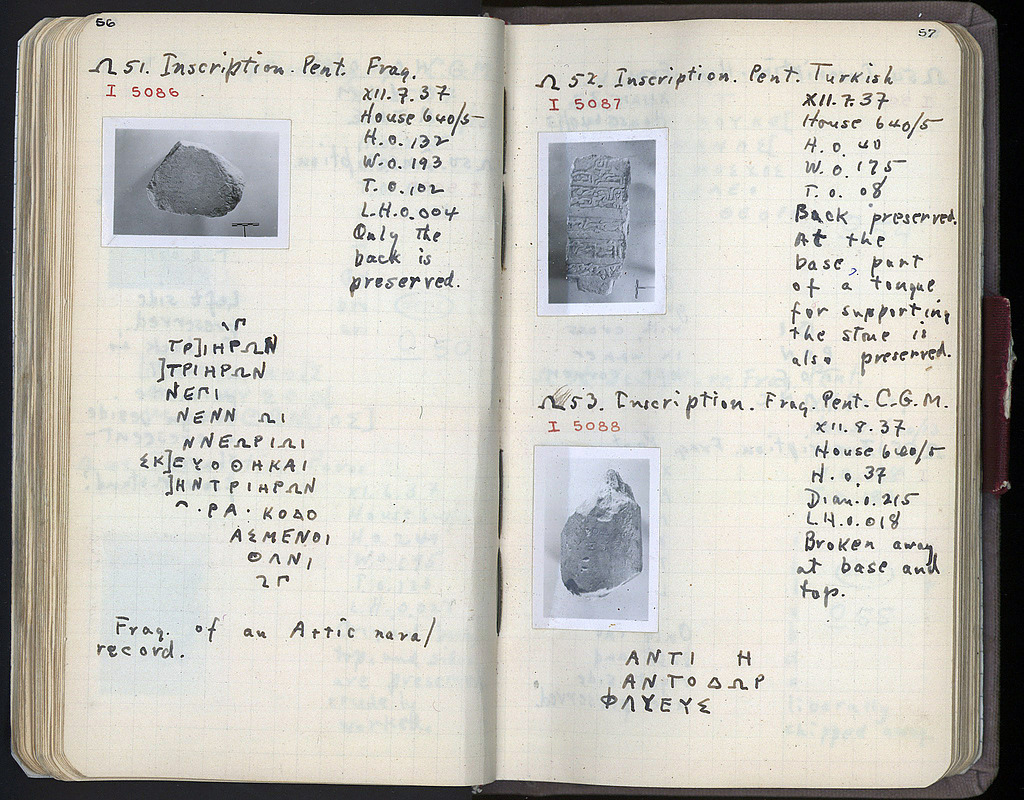 56
Ω 51. Inscription. Pent. Frag.
I 5086
XII.7.37
House 640/5
H.0.132
W.0.193
T.0.102
L.H.0.004
Only the
back is
preserved.
ΤΡ]ΙΗΡΩΝ
]ΤΡΙΗΡΩΝ
ΝΕΓΙ
ΝΕΝΝ ΩΙ
ΝΝΕΩΡΙΩΙ
ΣΚ]ΕΥΟΘΗΚΑΙ
]ΗΝΤΡΙΗΡΩΝ
·ΡΑ·ΚΟΔΟ
ΑΣΜΕΝΟΙ
ΘΛΝΙ
Frag. of an Attic naval
record.
57
Ω 52. Inscription. Pent. Turkish
I 5087
XII.7.37
House 640/5
H.0.40
W.0.175
T.0.08
Back preserved.
At the
base part
of a tongue
for supporting
the stone is
also preserved.
Ω 53. Inscription. Frag. Pent. C.G.M.
I 5088
XII.8.37
House 640/5
H.0.37
Diam.0.215
L.H.0.018
Broken away
at base and
top.
ΑΝΤΙ Η
ΑΝΤΟΔΩΡ
ΦΛΥΕΥΣ